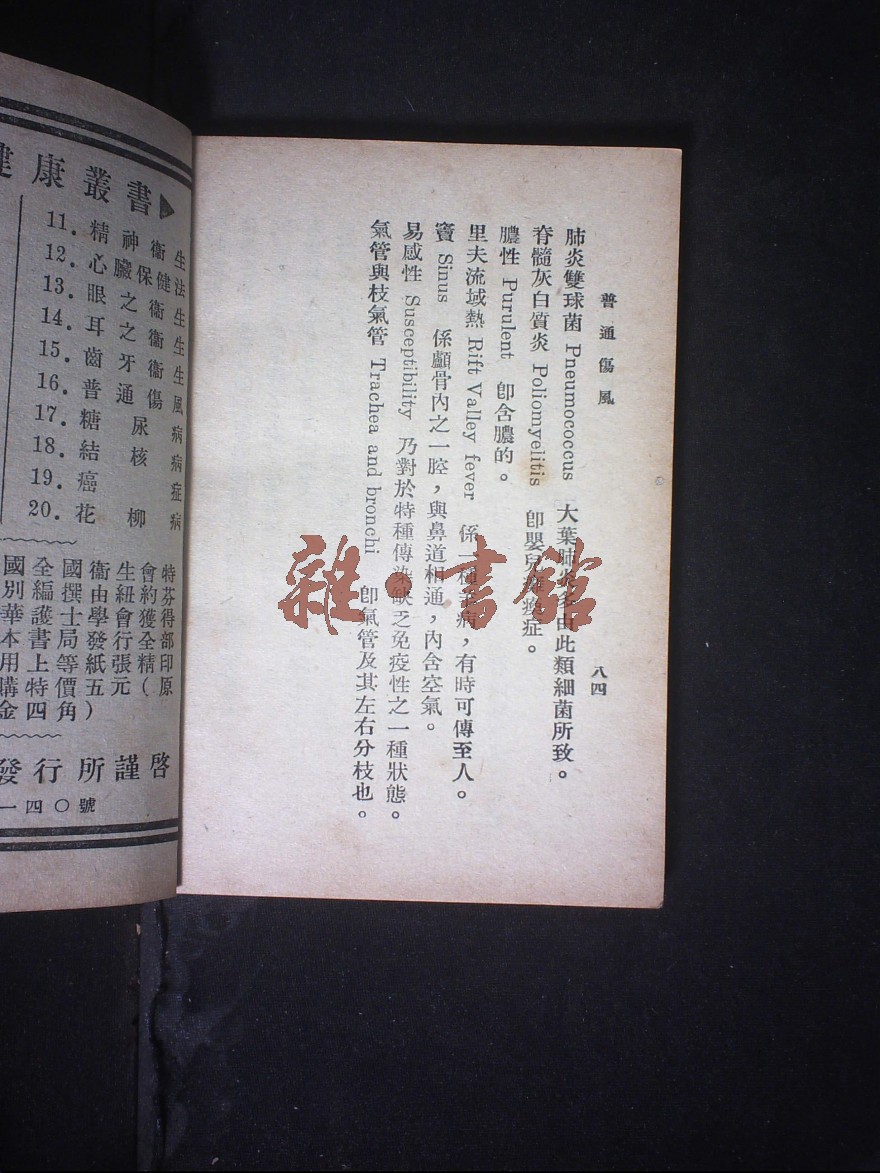 普通傷風
八四
肺炎雙球菌 Pneumococcus 大葉肺炎多由此類細菌所致。
脊髓灰白質炎 Poliomyelitis 卽嬰兒癱瘓症。
膿性 Purulent 卽含膿的。
里夫流域熱 Rift Valley fever 係一種羊病,有時可傳至人。
竇 Sinus 係顱骨內之一腔,與鼻道相通,內含空氣。
易感性 Susceptibility 乃對於特種傳染缺乏免疫性之一種狀態。
氣管與枝氣管 Trachea and bronchi 卽氣管及其左右分枝也。
健康叢書
11. 精神衞生法
12. 心臟保健
13. 眼之衞生
14. 耳之衞生
15. 齒牙衞生
16. 普通傷風
17. 糖尿病
18. 結核病
19. 癌症
20. 花柳病
特芬得部印原
會約獲全精(
生紐會行張元
衞由學發紙五)
國撰士局等價角
全編護書上特四
國別華本用購金
發行所謹啓
一四〇號
雜·書館